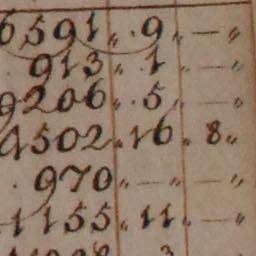 6591 „ 9 „ — „
913 „ 1 „ — „
9206 „ 5 „ — „
9502 „ 16 „ 8 „
970 „ — „ — „
1155 „ 11 „ — „